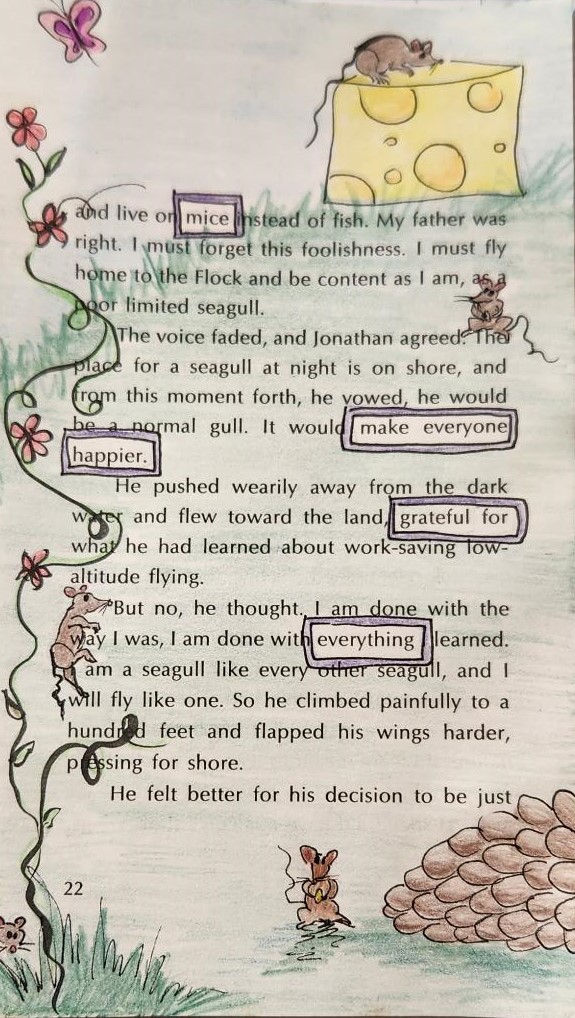 and live on mice instead of fish. My father was
right. I must forget this foolishness. I must fly
home to the Flock and be content as I am, as a
poor limited seagull.
The voice faded, and Jonathan agreed. The
place for a seagull at night is on shore, and
from this moment forth, he vowed, he would
be a normal gull. It would make everyone
happier.
He pushed wearily away from the dark
water and flew toward the land, grateful for
what he had learned about work-saving low-
altitude flying.
But no, he thought. I am done with the
way I was, I am done with everything learned.
am a seagull like every other seagull, and I
will fly like one. So he climbed painfully to a
hundred feet and flapped his wings harder,
pressing for shore.
He felt better for his decision to be just
22